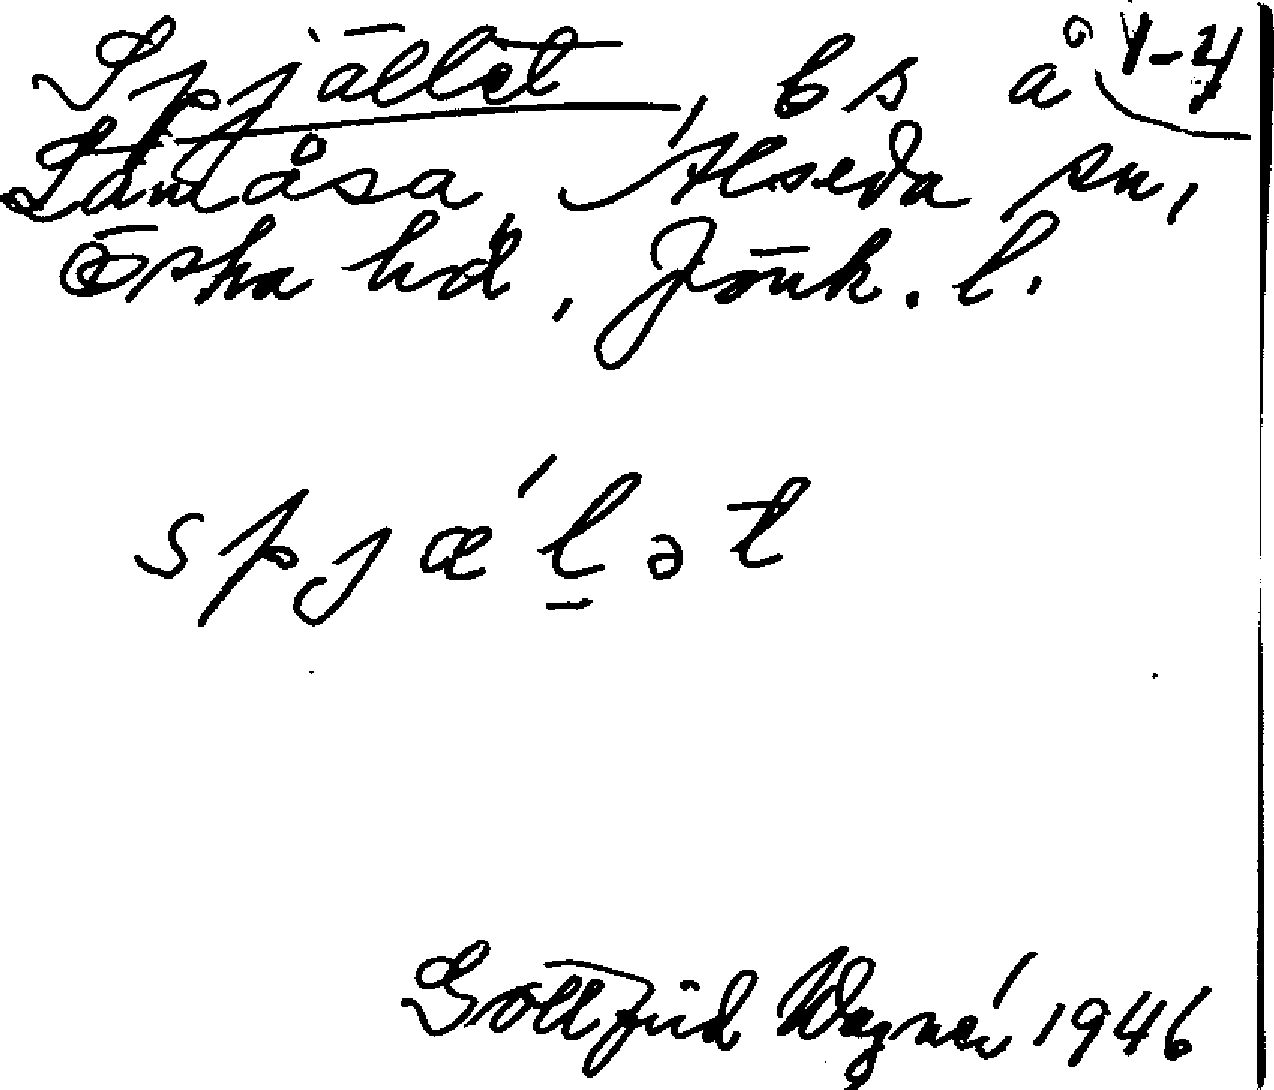 Spjället, bs å 1-4
Lämåsa, Alseda sn,
Östra hd, Jönk. l.
spjæ´l̠ət
Gottfrid Wagnér 1946